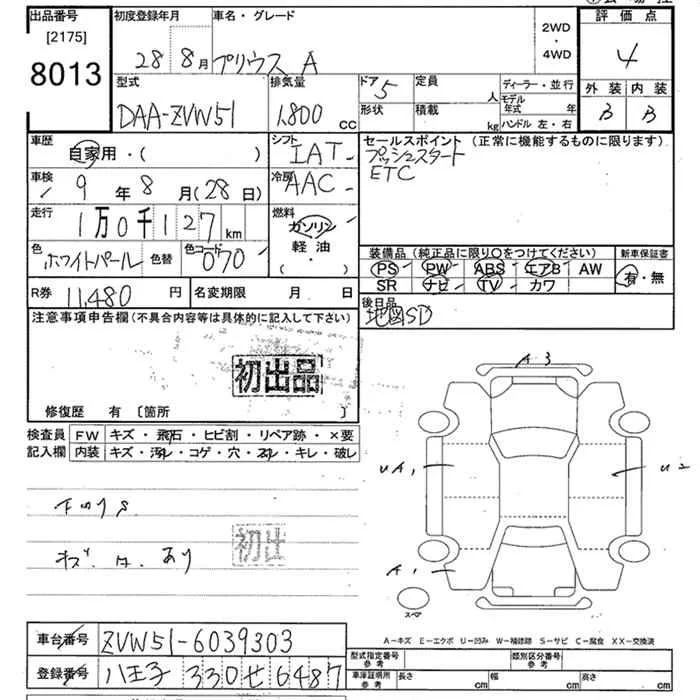 出品番号
[2175]
8013
初度登録年月
28 8月
車名・グレード
プリウス A
2WD
・
4WD
評価点
4
外装 内装
B B
型式
DAA-ZVW51
排気量
1,800 cc
ドア 5
形状
定員 人
積載 kg
ディーラー・並行
モデル年式 年
ハンドル 左・右
車歴
自家用・( )
車検
9年8月(28日)
走行
1万0千127km
色
ホワイトパール 色替
色コード
070
シフト
IAT
冷房
AAC
燃料
ガソリン
軽油
・
( )
セールスポイント (正常に機能するものに限ります)
プッシュスタート
ETC
装備品 (純正品に限り○をつけてください)
PS PW ABS エアB AW
SR ナビ TV カワ
新車保証書
有・無
R券 11,480 円
名変期限 月 日
後日品
地図SD
注意事項申告欄(不具合内容等は具体的に記入して下さい)
初出品
修復歴 有 [箇所 ]
検査員
記入欄
FW キズ・飛石・ヒビ割・リペア跡・×要
内装 キズ・汚れ・コゲ・穴・スレ・キレ・破レ
キズ
あり
初出
A3
UA1
U2
A1
スペア
A−キズ E−エクボ U−凹み W−補修跡 S−サビ C−腐食 XX−交換済
車台番号 ZVW51-6039303
登録番号 八王子 330 せ 6487
型式指定番号
参考
類別区分番号
参考
車庫証明所
参考
長さ cm
幅 cm
高さ cm